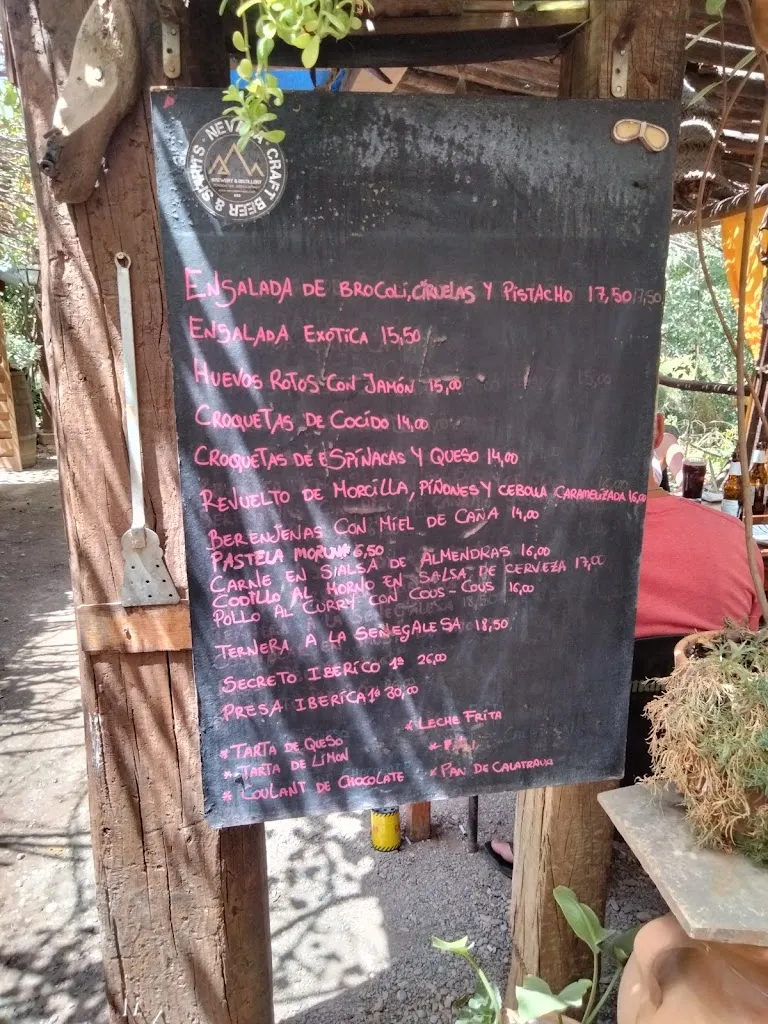 NEVADA CRAFT BEER & SPIRITS
BREWERY & DISTILLERY
ENSALADA DE BROCOLI, CIRUELAS Y PISTACHO 17,50
ENSALADA EXOTICA 15,50
HUEVOS ROTOS CON JAMÓN 15,00
CROQUETAS DE COCIDO 14,00
CROQUETAS DE ESPINACAS Y QUESO 14,00
REVUELTO DE MORCILLA, PIÑONES Y CEBOLLA CARAMELIZADA 16,00
BERENJENAS CON MIEL DE CAÑA 14,00
PASTELA MORUNA 6,50
CARNE EN SALSA DE ALMENDRAS 16,00
CODILLO AL HORNO EN SALSA DE CERVEZA 17,00
POLLO AL CURRY CON COUS-COUS 16,00
TERNERA A LA SENEGALESA 18,50
SECRETO IBERICO 1º 26,00
PRESA IBERICA 1º 30,00
* LECHE FRITA
* TARTA DE QUESO
* TARTA DE LIMON
* COULANT DE CHOCOLATE
* PAN DE CALATRAVA